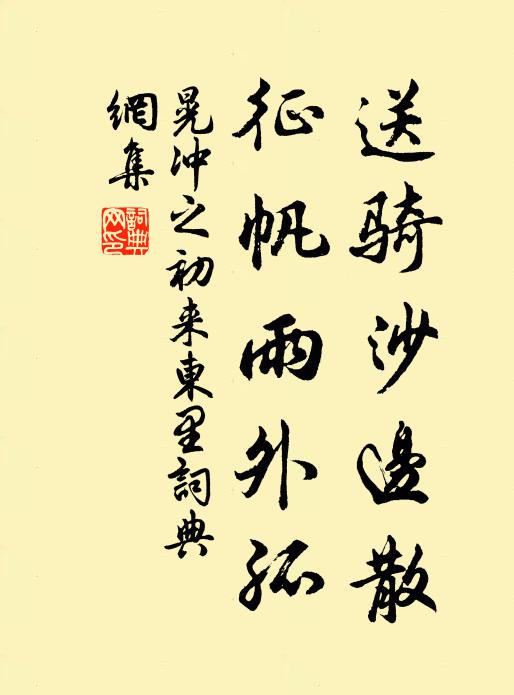 送骑沙邊散
征帆雨外孤
晁冲之初来東里詞典
網集
詞典
网印